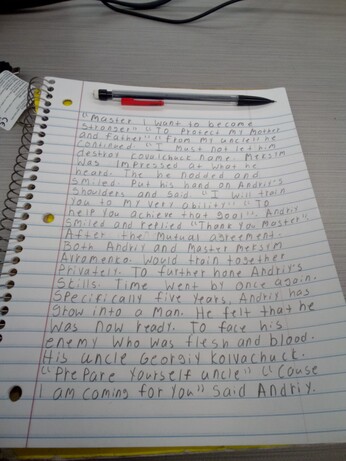 "Master i want to became
stronger" "To Protect my mother
and father" "From my uncle" he
continued. "I must not let him
destroy kovalchuck name. Meksym
was impressed at what he
heard. The he nodded and
smiled. Put his hand on Andriy's
Shoulders and said. "I will train
you to my very ability" "To
help you achieve that goal". Andriy
smiled and replied "Thank you Master"
After the Mutual agreement.
Both Andriy and Master Meksym
Avramenko. Would train together
Privately. To further hone Andriy's
Skills. Time went by once again.
Specifically five years, Andriy has
grow into a Man. He felt that he
was now ready. To face his
enemy who was flesh and blood.
His uncle Georgiy Kolvachuck.
"Prepare Yourself uncle" "Cause
I am coming for You" said Andriy.